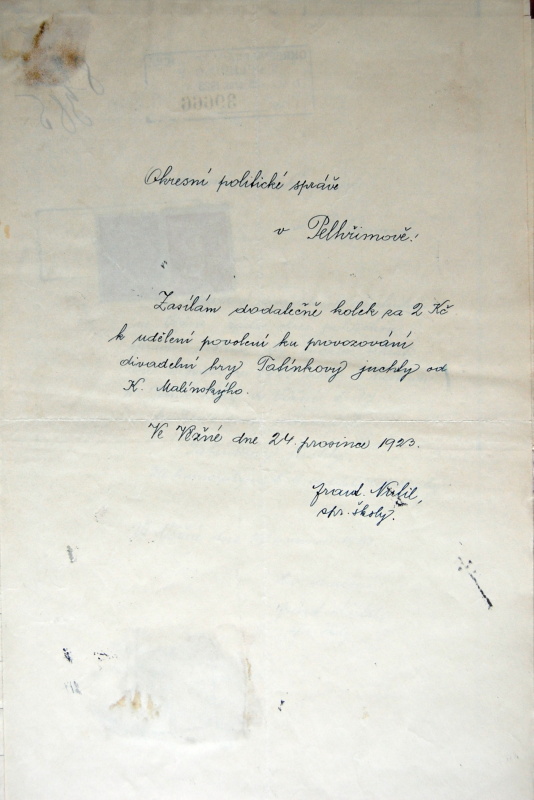 Okresní politické správě
v Pelhřimově.
Zasílám dodatečně kolek za 2 Kč
k udělení povolení ku provozování
divadelní hry Tatínkovy juchty od
K. Malínskýho.
Ve Vážné dne 24. prosince 1923.
spr. školy.
39666